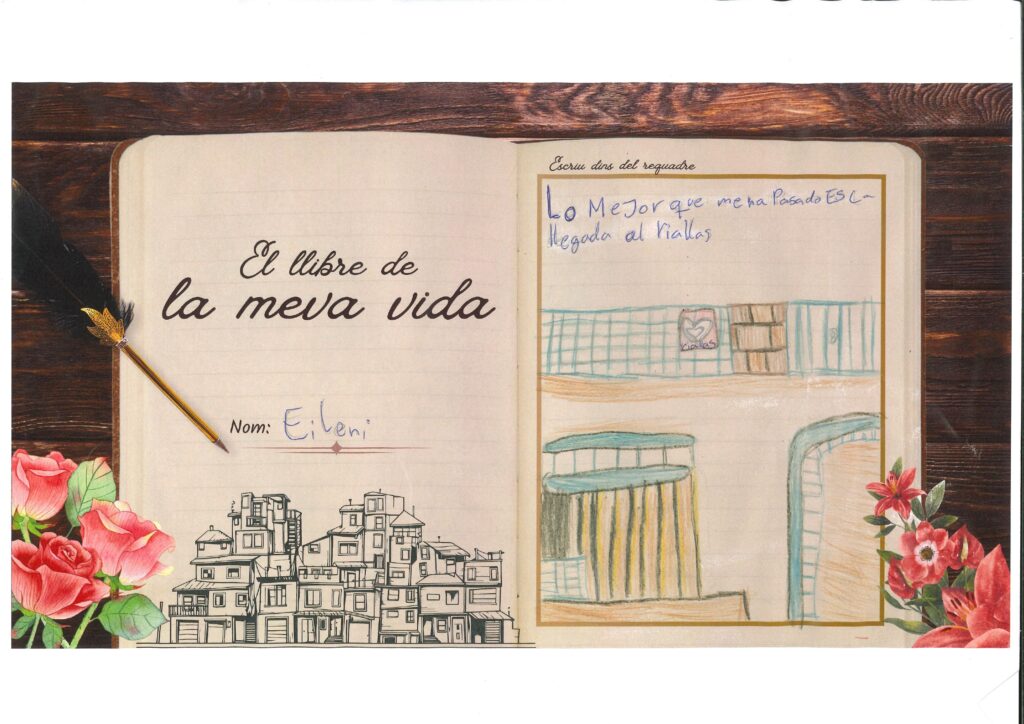 El llibre de
la meva vida
Nom: Eileni
Escriu dins del requadre
Lo Mejor que me ha Pasado ES L-
llegada al Viallas
Viallas